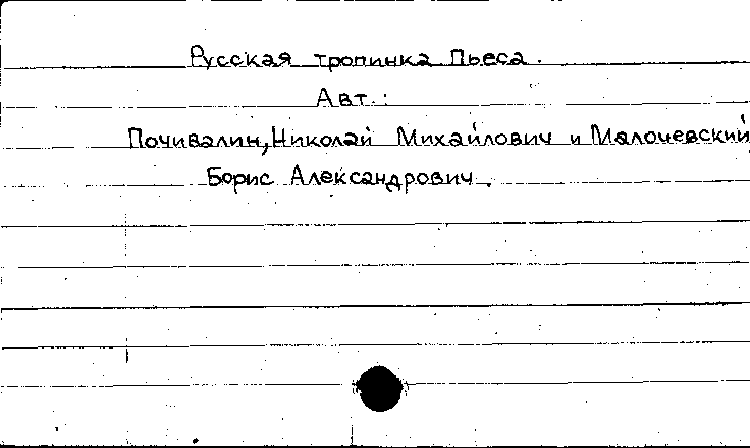 Русская тропинка Пьеса.
Авт.:
Почивалин, Николай Михайлович и Малочевский
Борис Александрович.